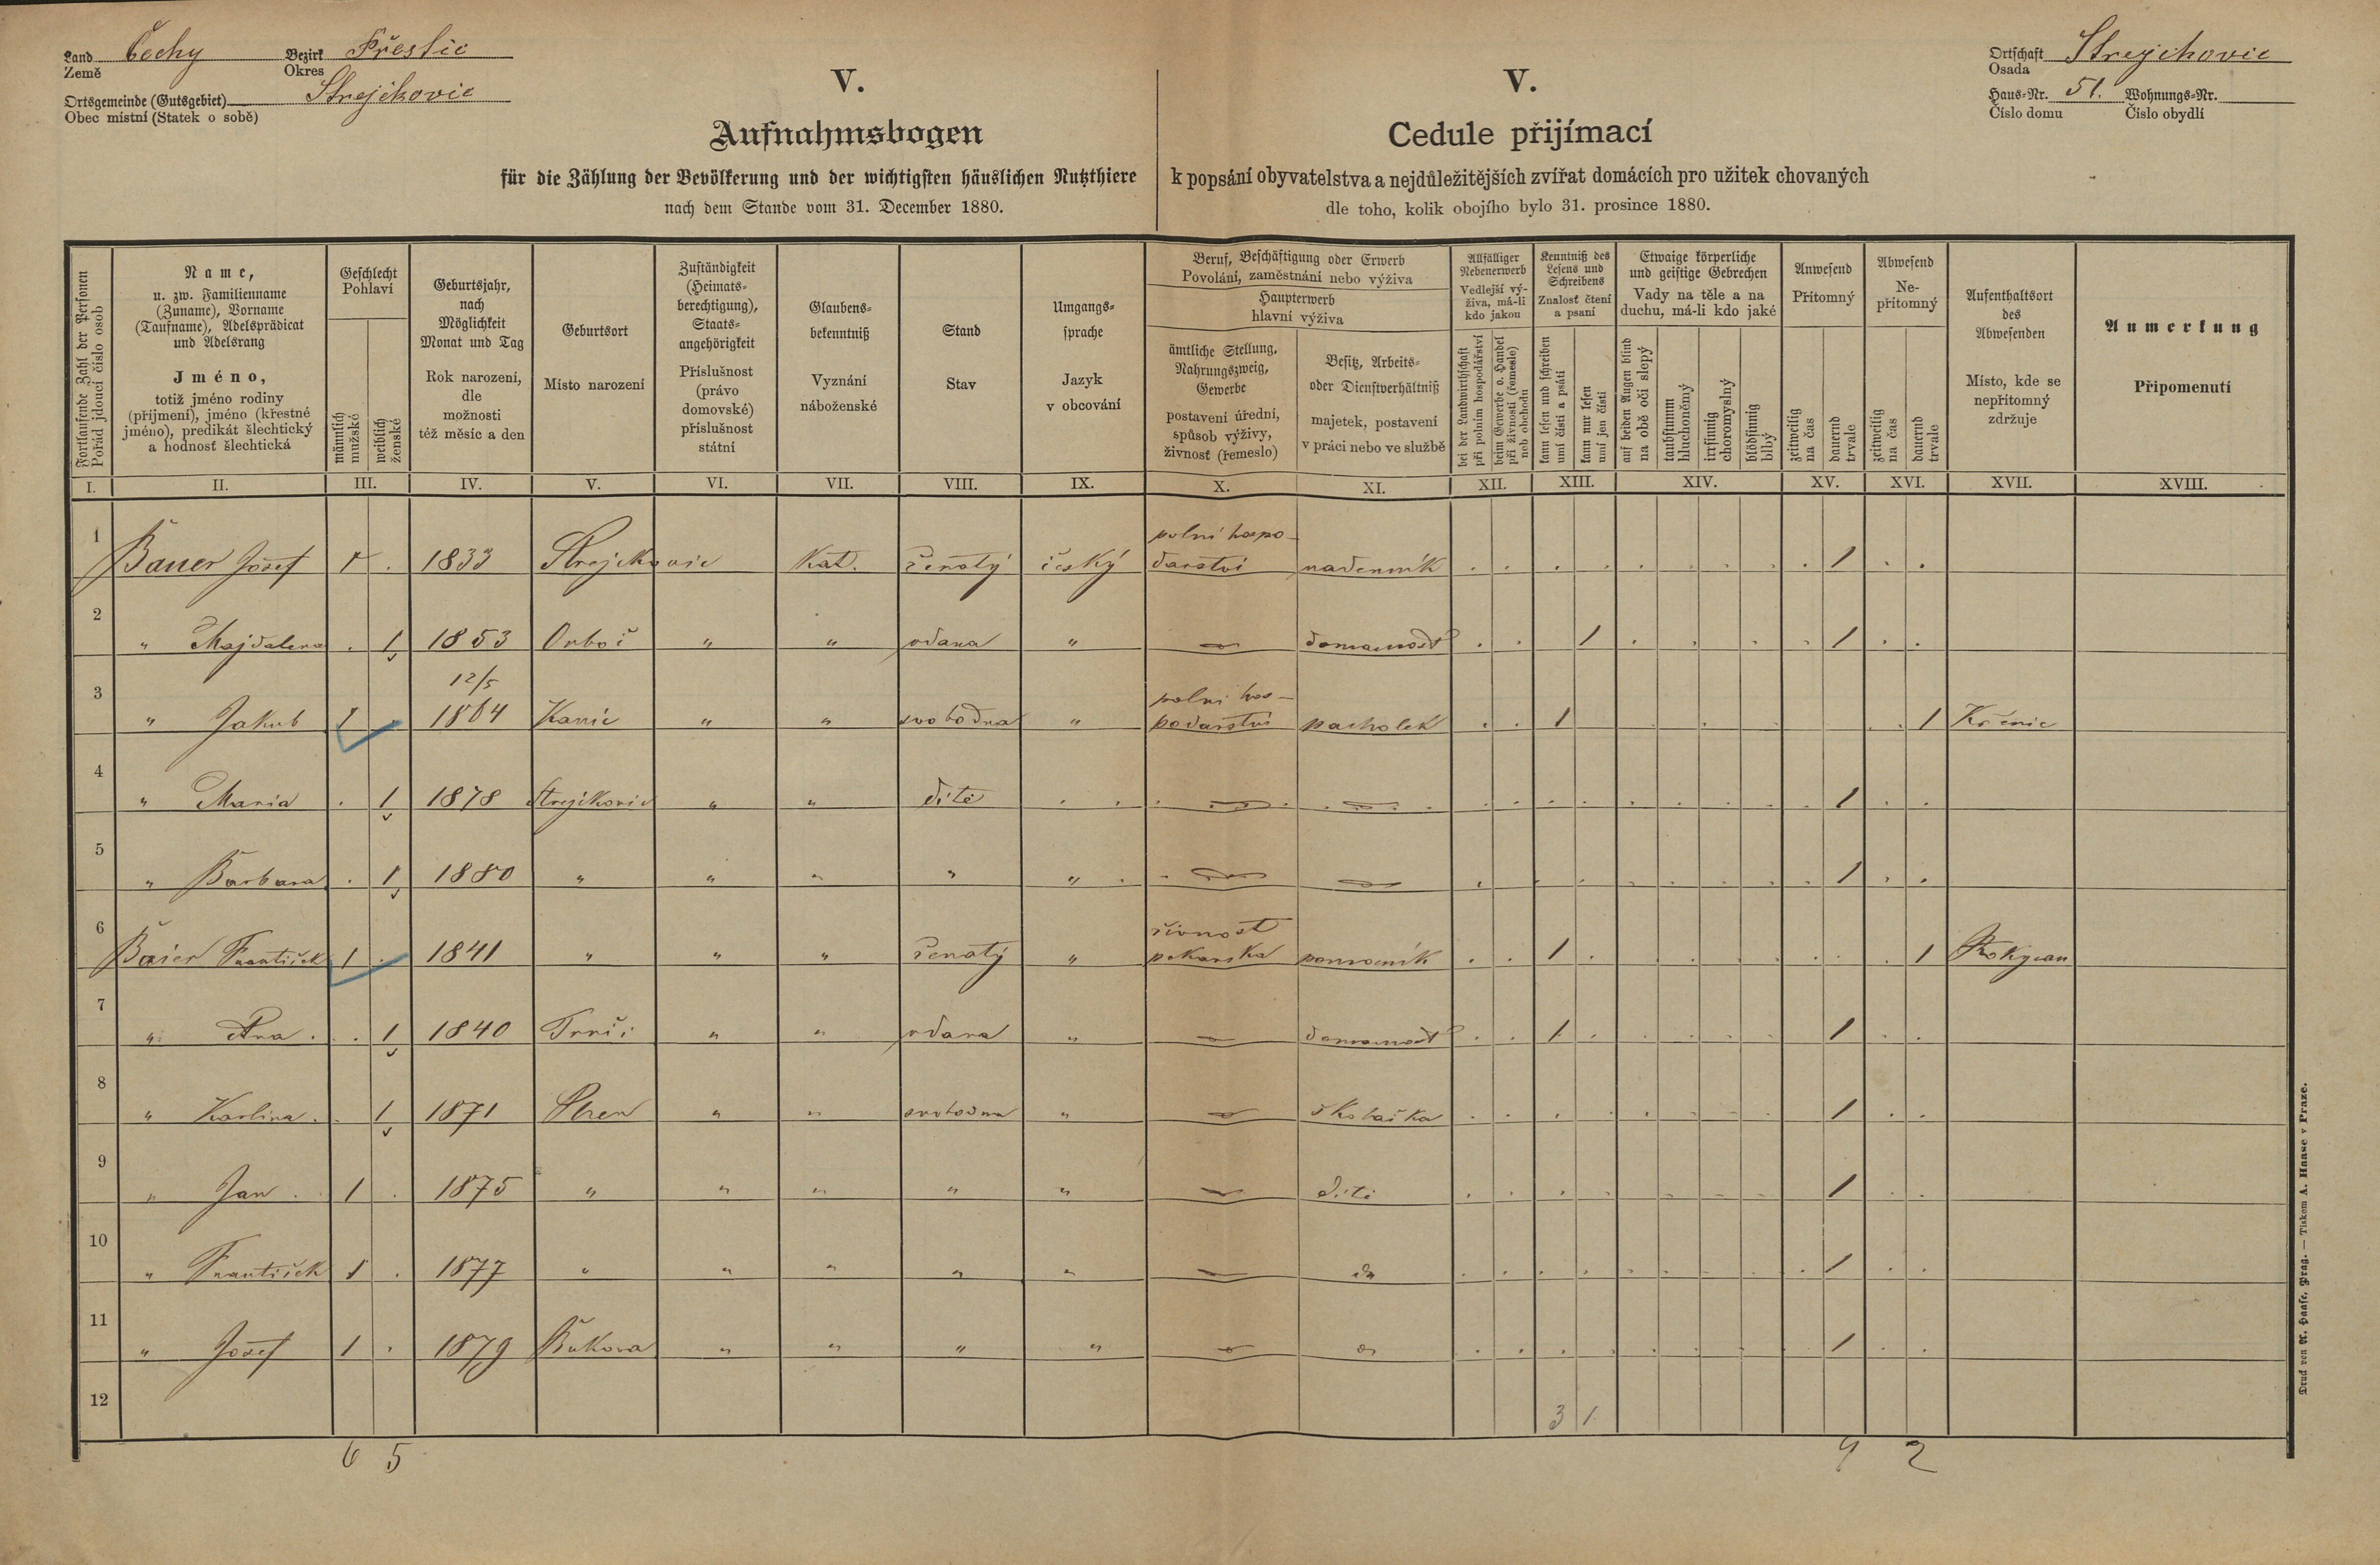 Land Čechy Bezirk Přestic
Země Okres
Ortsgemeinde (Gutsgebiet) Strejckovic
Obec místní (Statek o sobě)
V.
Aufnahmsbogen
für die Zählung der Bevölkerung und der wichtigsten häuslichen Nutzthiere
nach dem Stande vom 31. December 1880.
V.
Cedule přijímací
k popsání obyvatelstva a nejdůležitějších zvířat domácích pro užitek chovaných
dle toho, kolik obojího bylo 31. prosince 1880.
Ortschaft Strejckovic
Osada
Haus-Nr. 51. Wohnungs-Nr.
Číslo domu Číslo obydlí
Fortlaufende Zahl der Personen
Pořád jdoucí číslo osob
Name,
u. zw. Familienname
(Zuname), Vorname
(Taufname), Adelsprädicat
und Adelsrang
Jméno,
totiž jméno rodiny
(příjmení), jméno (křestné
jméno), predikát šlechtický
a hodnosť šlechtická
Geschlecht
Pohlaví
männlich
mužské
weiblich
ženské
Geburtsjahr,
nach
Möglichkeit
Monat und Tag
Rok narození,
dle
možnosti
též měsíc a den
Geburtsort
Místo narození
Zuständigkeit
(Heimats-
berechtigung),
Staats-
angehörigkeit
Příslušnost
(právo
domovské)
příslušnost
státní
Glaubens-
bekenntniß
Vyznání
náboženské
Stand
Stav
Umgangs-
sprache
Jazyk
v obcování
Beruf, Beschäftigung oder Erwerb
Povolání, zaměstnání nebo výživa
Haupterwerb
hlavní výživa
ämtliche Stellung,
Nahrungszweig,
Gewerbe
postavení úřední,
spůsob výživy,
živnosť (řemeslo)
Besitz, Arbeits-
oder Dienstverhältniß
majetek, postavení
v práci nebo ve službě
Allfälliger
Nebenerwerb
Vedlejší vý-
živa, má-li
kdo jakou
bei der Landwirthschaft
při polním hospodářství
beim Gewerbe o. Handel
při živnosti (řemesle)
neb obchodu
Kenntniß des
Lesens und
Schreibens
Znalosť čtení
a psaní
kann lesen und schreiben
umí čísti a psáti
kann nur lesen
umí jen čísti
Etwaige körperliche
und geistige Gebrechen
Vady na těle a na
duchu, má-li kdo jaké
auf beiden Augen blind
na obě oči slepý
taubstumm
hluchoněmý
irrsinnig
choromyslný
blödsinnig
blbý
Anwesend
Přítomný
zeitweilig
na čas
dauernd
trvale
Abwesend
Ne-
přítomný
zeitweilig
na čas
dauernd
trvale
Aufenthaltsort
des
Abwesenden
Místo, kde se
nepřítomný
zdržuje
Anmerkung
Připomenutí
I. II. III. IV. V. VI. VII. VIII. IX. X. XI. XII. XIII. XIV. XV. XVI. XVII. XVIII.
1 Bauer Josef 1 1833 Strejckovic Kat. ženatý český polní hospo-
darství nadenník 1
2 " Majdalena 1 1853 " " vdana " domacnost 1 1
12/5
3 " Jakub 1 1864 Kanic " " svobodna " polni hos-
podarstvi pacholek 1 1 Křenic
4 " Maria 1 1878 Strejckovic " " ditě 1
5 " Barbara 1 1880 " " " " " 1
6 Baier František 1 1841 " " " ženatý " živnost
pekarska pomocník 1 1 Rokycan
7 " Ana 1 1840 " " vdana " domacnost 1 1
8 " Karlina 1 1871 " " svobodna " školačka 1
9 " Jan 1 1875 " " " " " ditě 1
10 " František 1 1877 " " " " " 1
11 " Josef 1 1879 Bukova " " " " 1
12
3 1
6 5 9 2
Druck von A. Haase, Prag. — Tiskem A. Haase v Praze.